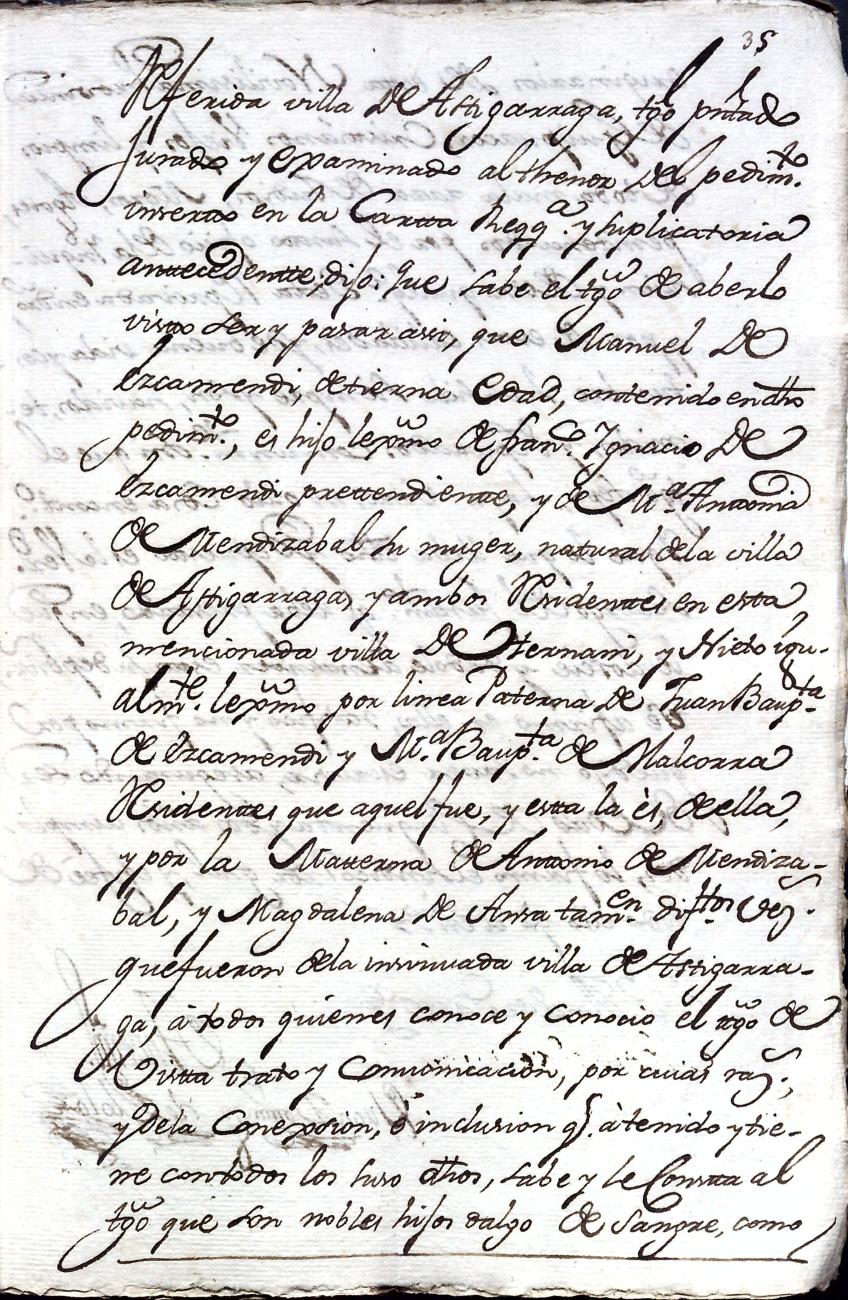 35
Referida villa de Astigarraga, tgo prẽtado
Jurado y examinado al thenor del pedim.to
inserto en la Cartta Reqq.a y suplicatoria
anttecedentte, dijo: que sabe el tgo de aberlo
visto ser y pasar assi, que Manuel de
Ezcamendi, de tierna edad, contenido en dho
pedim.to, es hijo lexmo de Fran.co Ygnacio de
Ezcamendi prettendientte, y de M.a Anttonia
de Mendizabal su muger, natural de la villa
de Astigarraga, y ambos Residenttes en esta
mencionada villa de Hernani, y Nieto igu-
alm.te lexmo por linea Paterna de Juan Baup.ta
de Ezcamendi y M.a Baup.ta de Malcorra
Residenttes que aquel fue, y estta la ès, de ella,
y por la Matterna de Anttonio de Mendiza-
bal, y Magdalena de Ansa tam.en dif.ttos vez.s
que fueron de la insinuada villa de Astigarra-
ga, à todos quienes conoce y conocio el ttgo de
Vistta trato y Comunicación, por cuias raz.s,
y de la Conexsion, è inclusion q.e à tenido y tie-
ne con todos los suso dhos, sabe y le Constta al
tgo que son nobles hijos dalgo de sangre, como